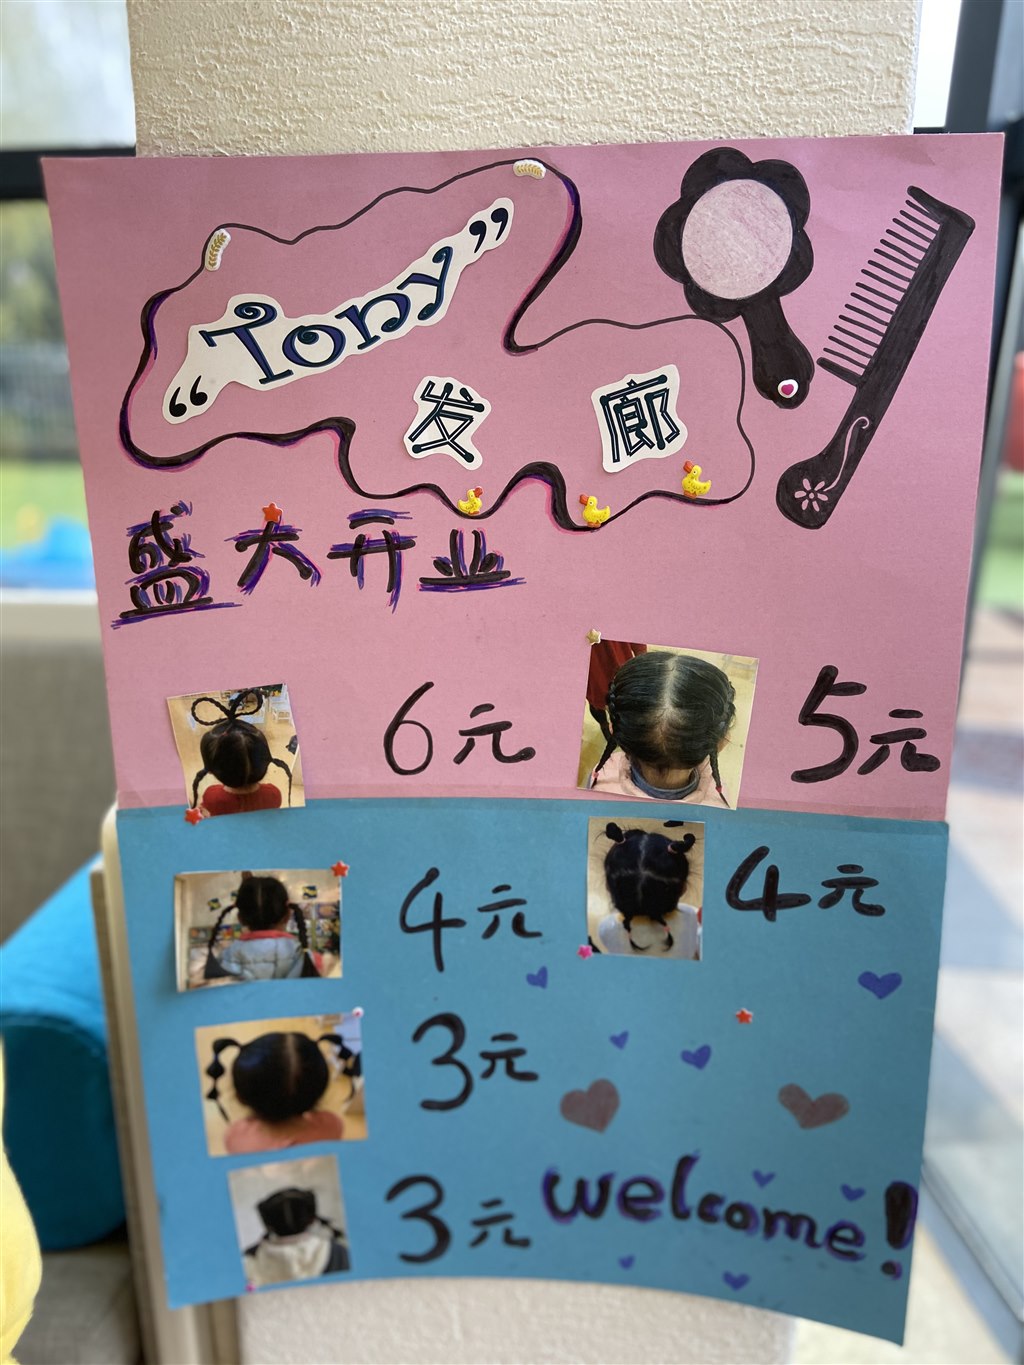 “Tony”
发廊
盛大开业
6元 5元
4元 4元
3元
3元
welcome!